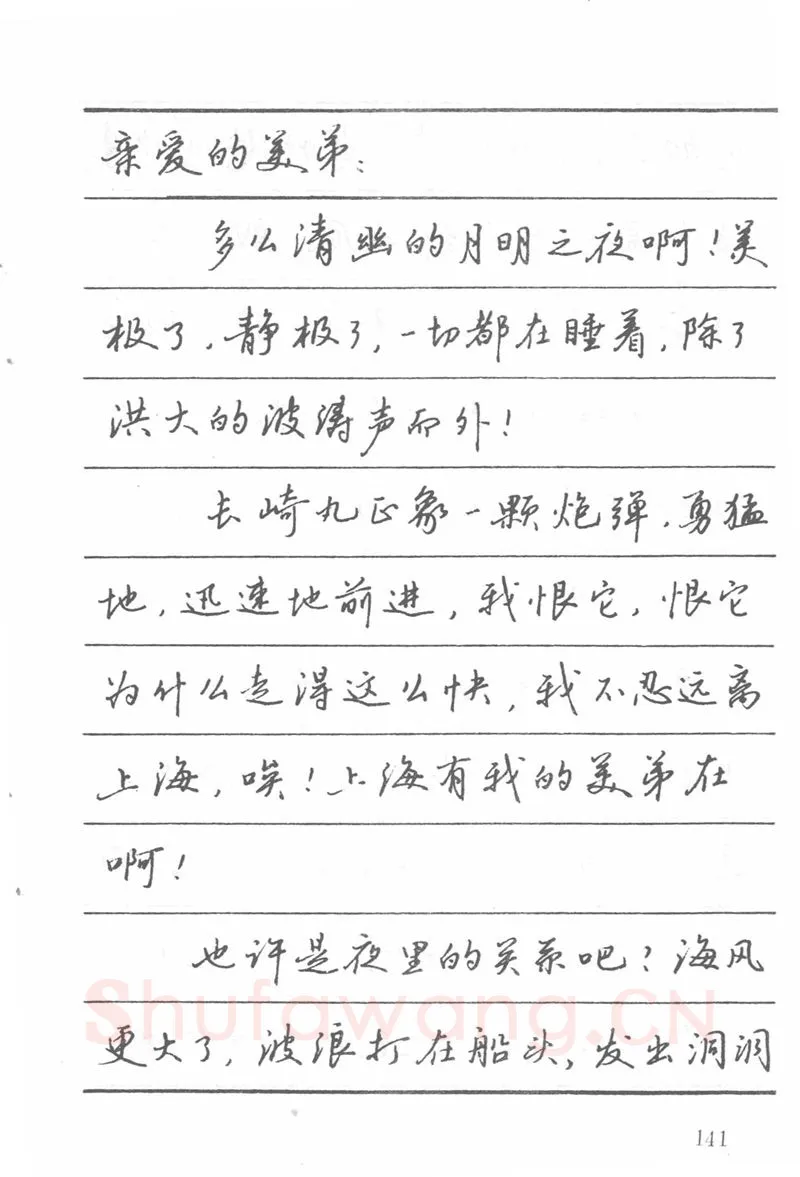 亲爱的美弟：
多么清幽的月明之夜啊！美
极了，静极了，一切都在睡着，除了
洪大的波涛声而外！
长崎丸正象一颗炮弹，勇猛
地，迅速地前进，我恨它，恨它
为什么走得这么快，我不忍远离
上海，唉！上海有我的美弟在
啊！
也许是夜里的关系吧？海风
更大了，波浪打在船头，发出洞洞
Shufawang.CN
141